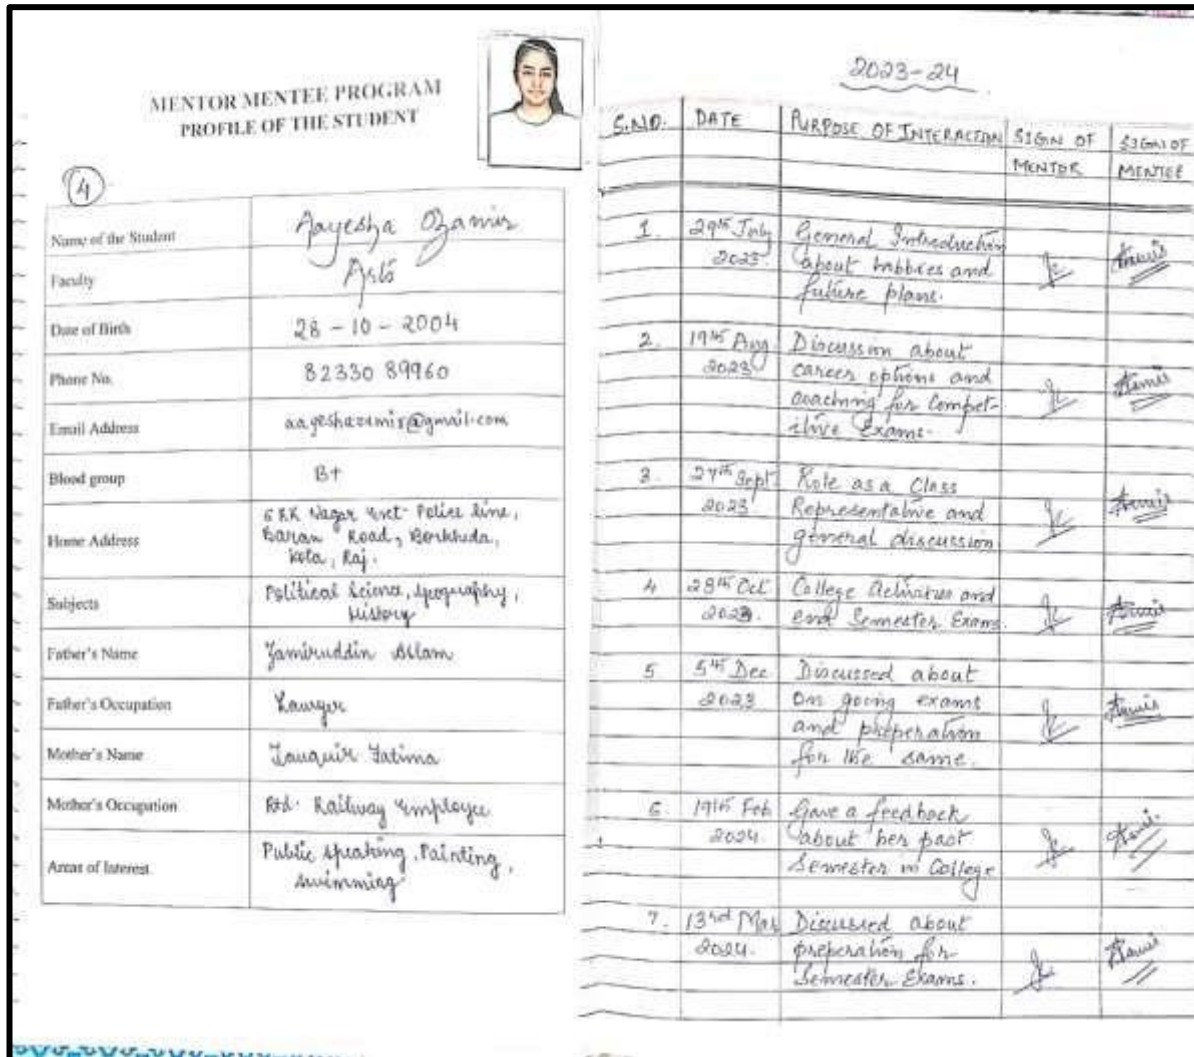 MENTOR MENTEE PROGRAM
PROFILE OF THE STUDENT
4
Name of the Student Aayesha Ozamir
Faculty Arts
Date of Birth 28-10-2004
Phone No. 82330 89960
Email Address aayeshazamir@gmail.com
Blood group B+
Home Address
Nagar Police line,
Baran Road, Borkheda,
Kota, Raj.
Subjects Political Science, Geography,
History
Father's Name Zamiruddin Aslam
Father's Occupation Lawyer
Mother's Name Tauquir Fatima
Mother's Occupation Rtd. Railway employee
Areas of Interest Public speaking, Painting,
swimming
2023-24
S.NO. DATE PURPOSE OF INTERACTION SIGN OF SIGN OF
MENTOR MENTEE
1. 29th July General Introduction
2023. about hobbies and
future plans.
2. 19th Aug Discussion about
2023 career options and
coaching for Compet-
itive Exams.
3. 27th Sept. Role as a Class
2023. Representative and
general discussion
4 28th Oct College Activities and
2023. end Semester Exams.
5 5th Dec Discussed about
2023 On going exams
and preperation
for the same.
6. 19th Feb Gave a feedback
2024. about her past
Semester in College
7. 13rd Mar Discussed about
2024. preperation for
Semester Exams.